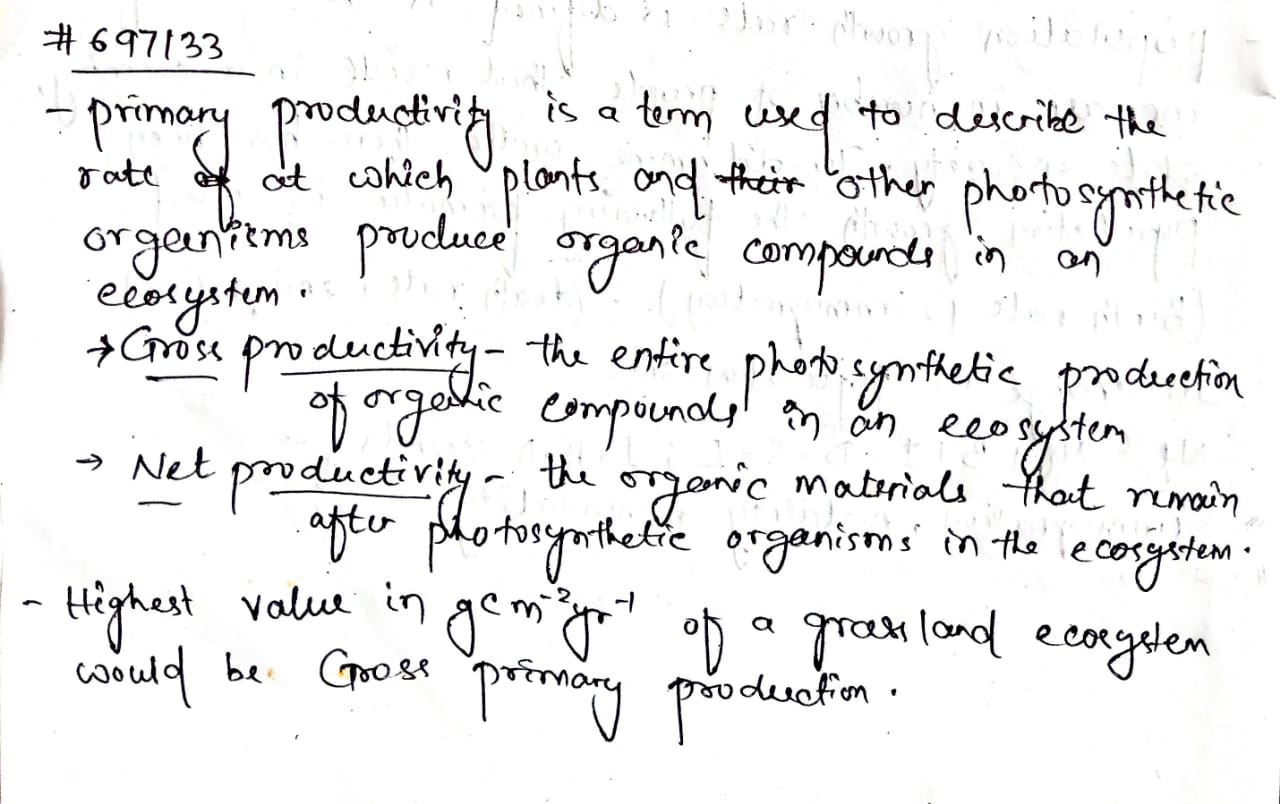 # 697133
- primary productivity is a term used to describe the
rate of at which plants and their other photosynthetic
organisms produce organic compounds in an
ecosystem.
→ Gross productivity - the entire photosynthetic production
of organic compounds in an ecosystem
→ Net productivity - the organic materials that remain
after photosynthetic organisms in the ecosystem.
- Highest value in gcm⁻²yr⁻¹ of a grassland ecosystem
would be Gross primary production.